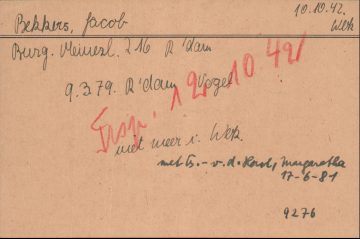 Bekkers, Jacob
10.10.42.
Wbk
Burg. Meinesl. 216 R'dam
9.3.79. R'dam Vogel
Trsp. 12.10.42
niet meer i. Wbk.
met Es.- v.d. Horst, Margaretha
17-6-81
9276